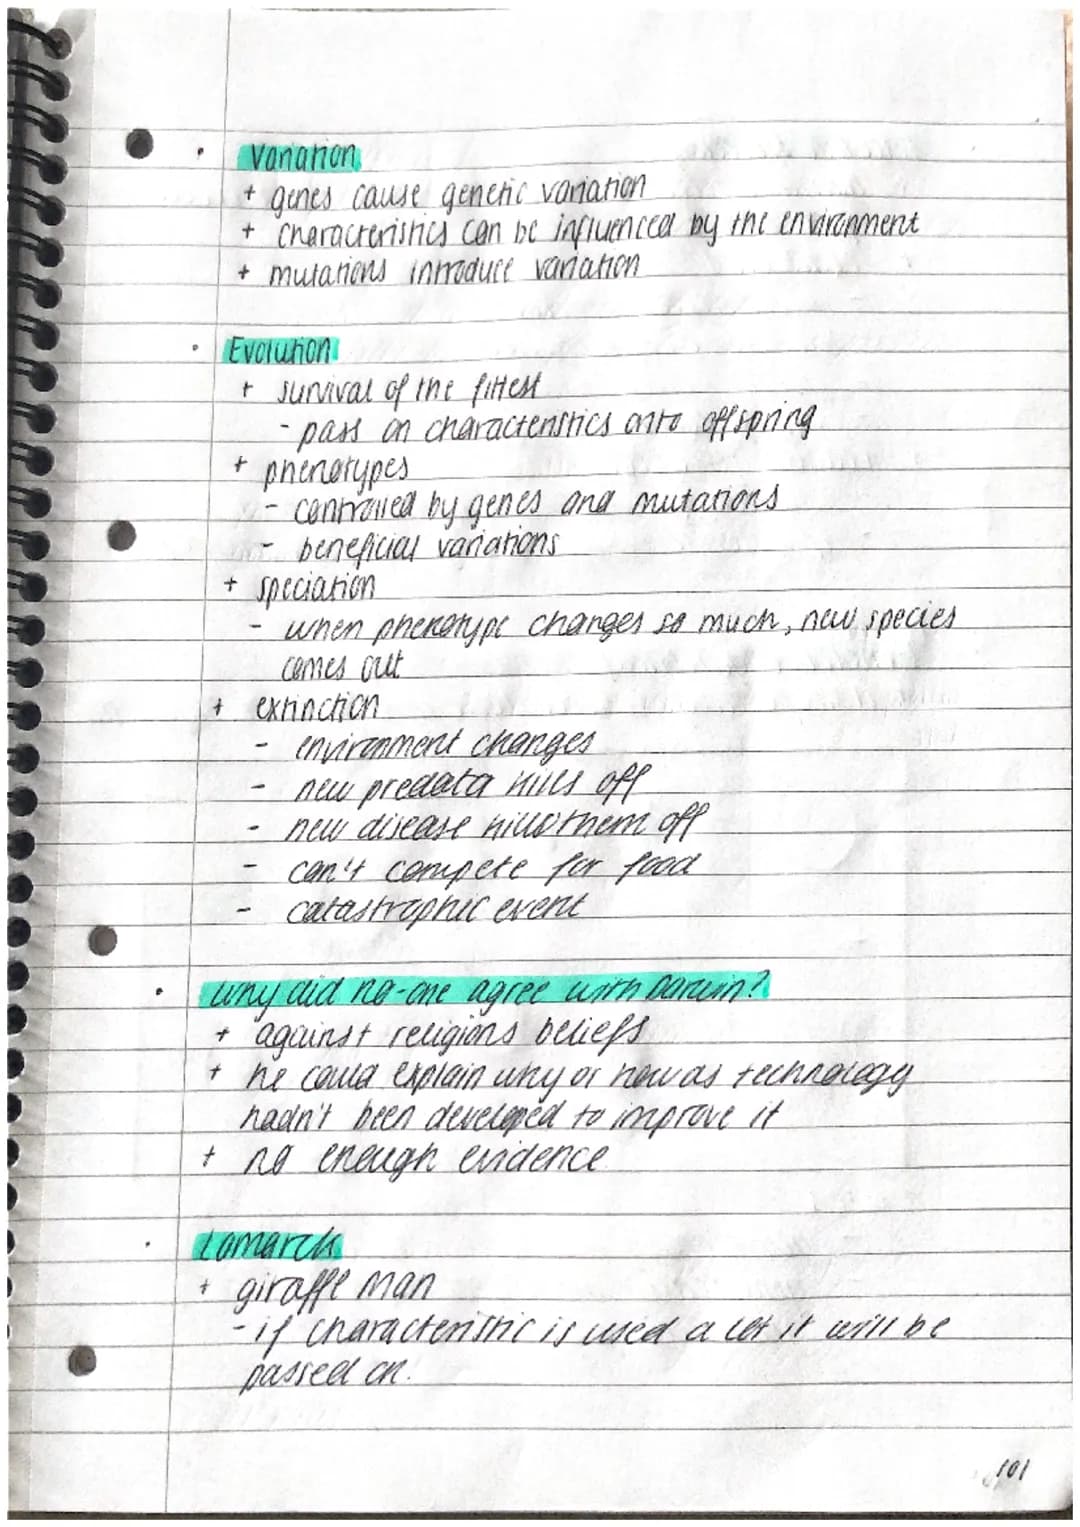 • Variation
+ genes cause genetic variation
+ characteristics can be influenced by the environment
+ mutations introduce variation
• Evolution
+ survival of the fittest
- pass on characteristics onto offspring
+ phenotypes
- controlled by genes and mutations
- beneficial variations
+ speciation
- when phenotype changes so much, new species
comes out
+ extinction
- environment changes
- new predata kills off
- new disease kills them off
- can't compete for food
- catastrophic event
• Why did no-one agree with Darwin?
+ against religions beliefs
+ he could explain why or how as technology
hadn't been developed to improve it
+ no enough evidence
• Lamarck
+ giraffe man
- if characteristic is used a lot it will be
passed on.
101